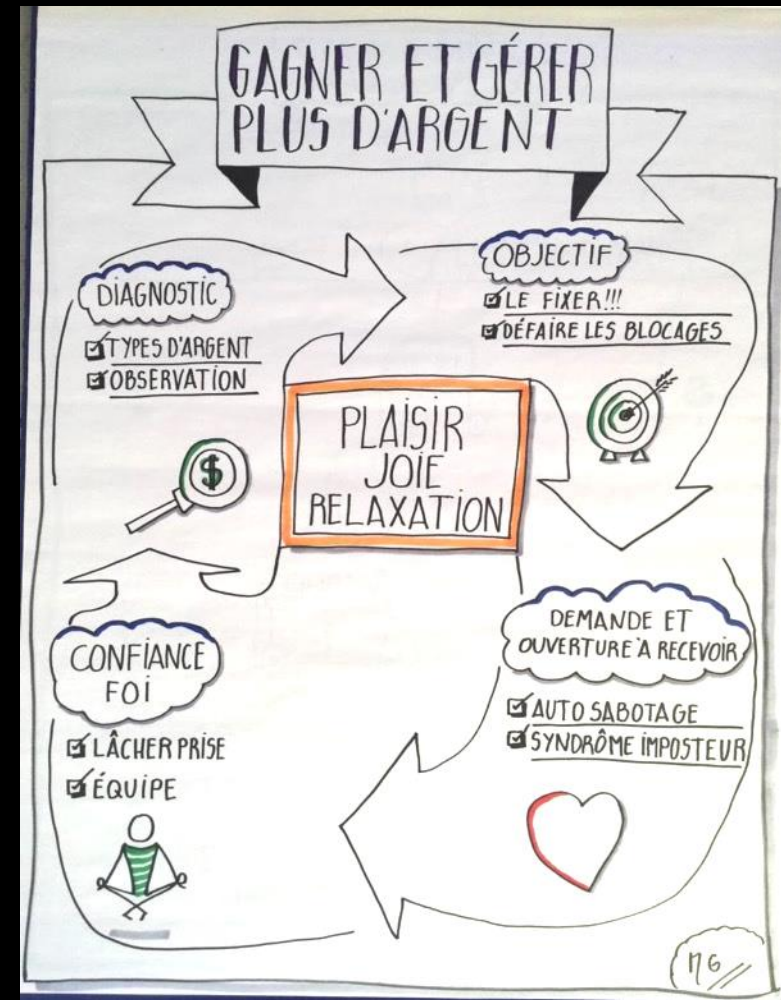 GAGNER ET GÉRER
PLUS D'ARGENT
DIAGNOSTIC
TYPES D'ARGENT
OBSERVATION
$
OBJECTIF
LE FIXER!!!
DÉFAIRE LES BLOCAGES
PLAISIR
JOIE
RELAXATION
DEMANDE ET
OUVERTURE À RECEVOIR
AUTO SABOTAGE
SYNDRÔME IMPOSTEUR
CONFIANCE
FOI
LÂCHER PRISE
ÉQUIPE